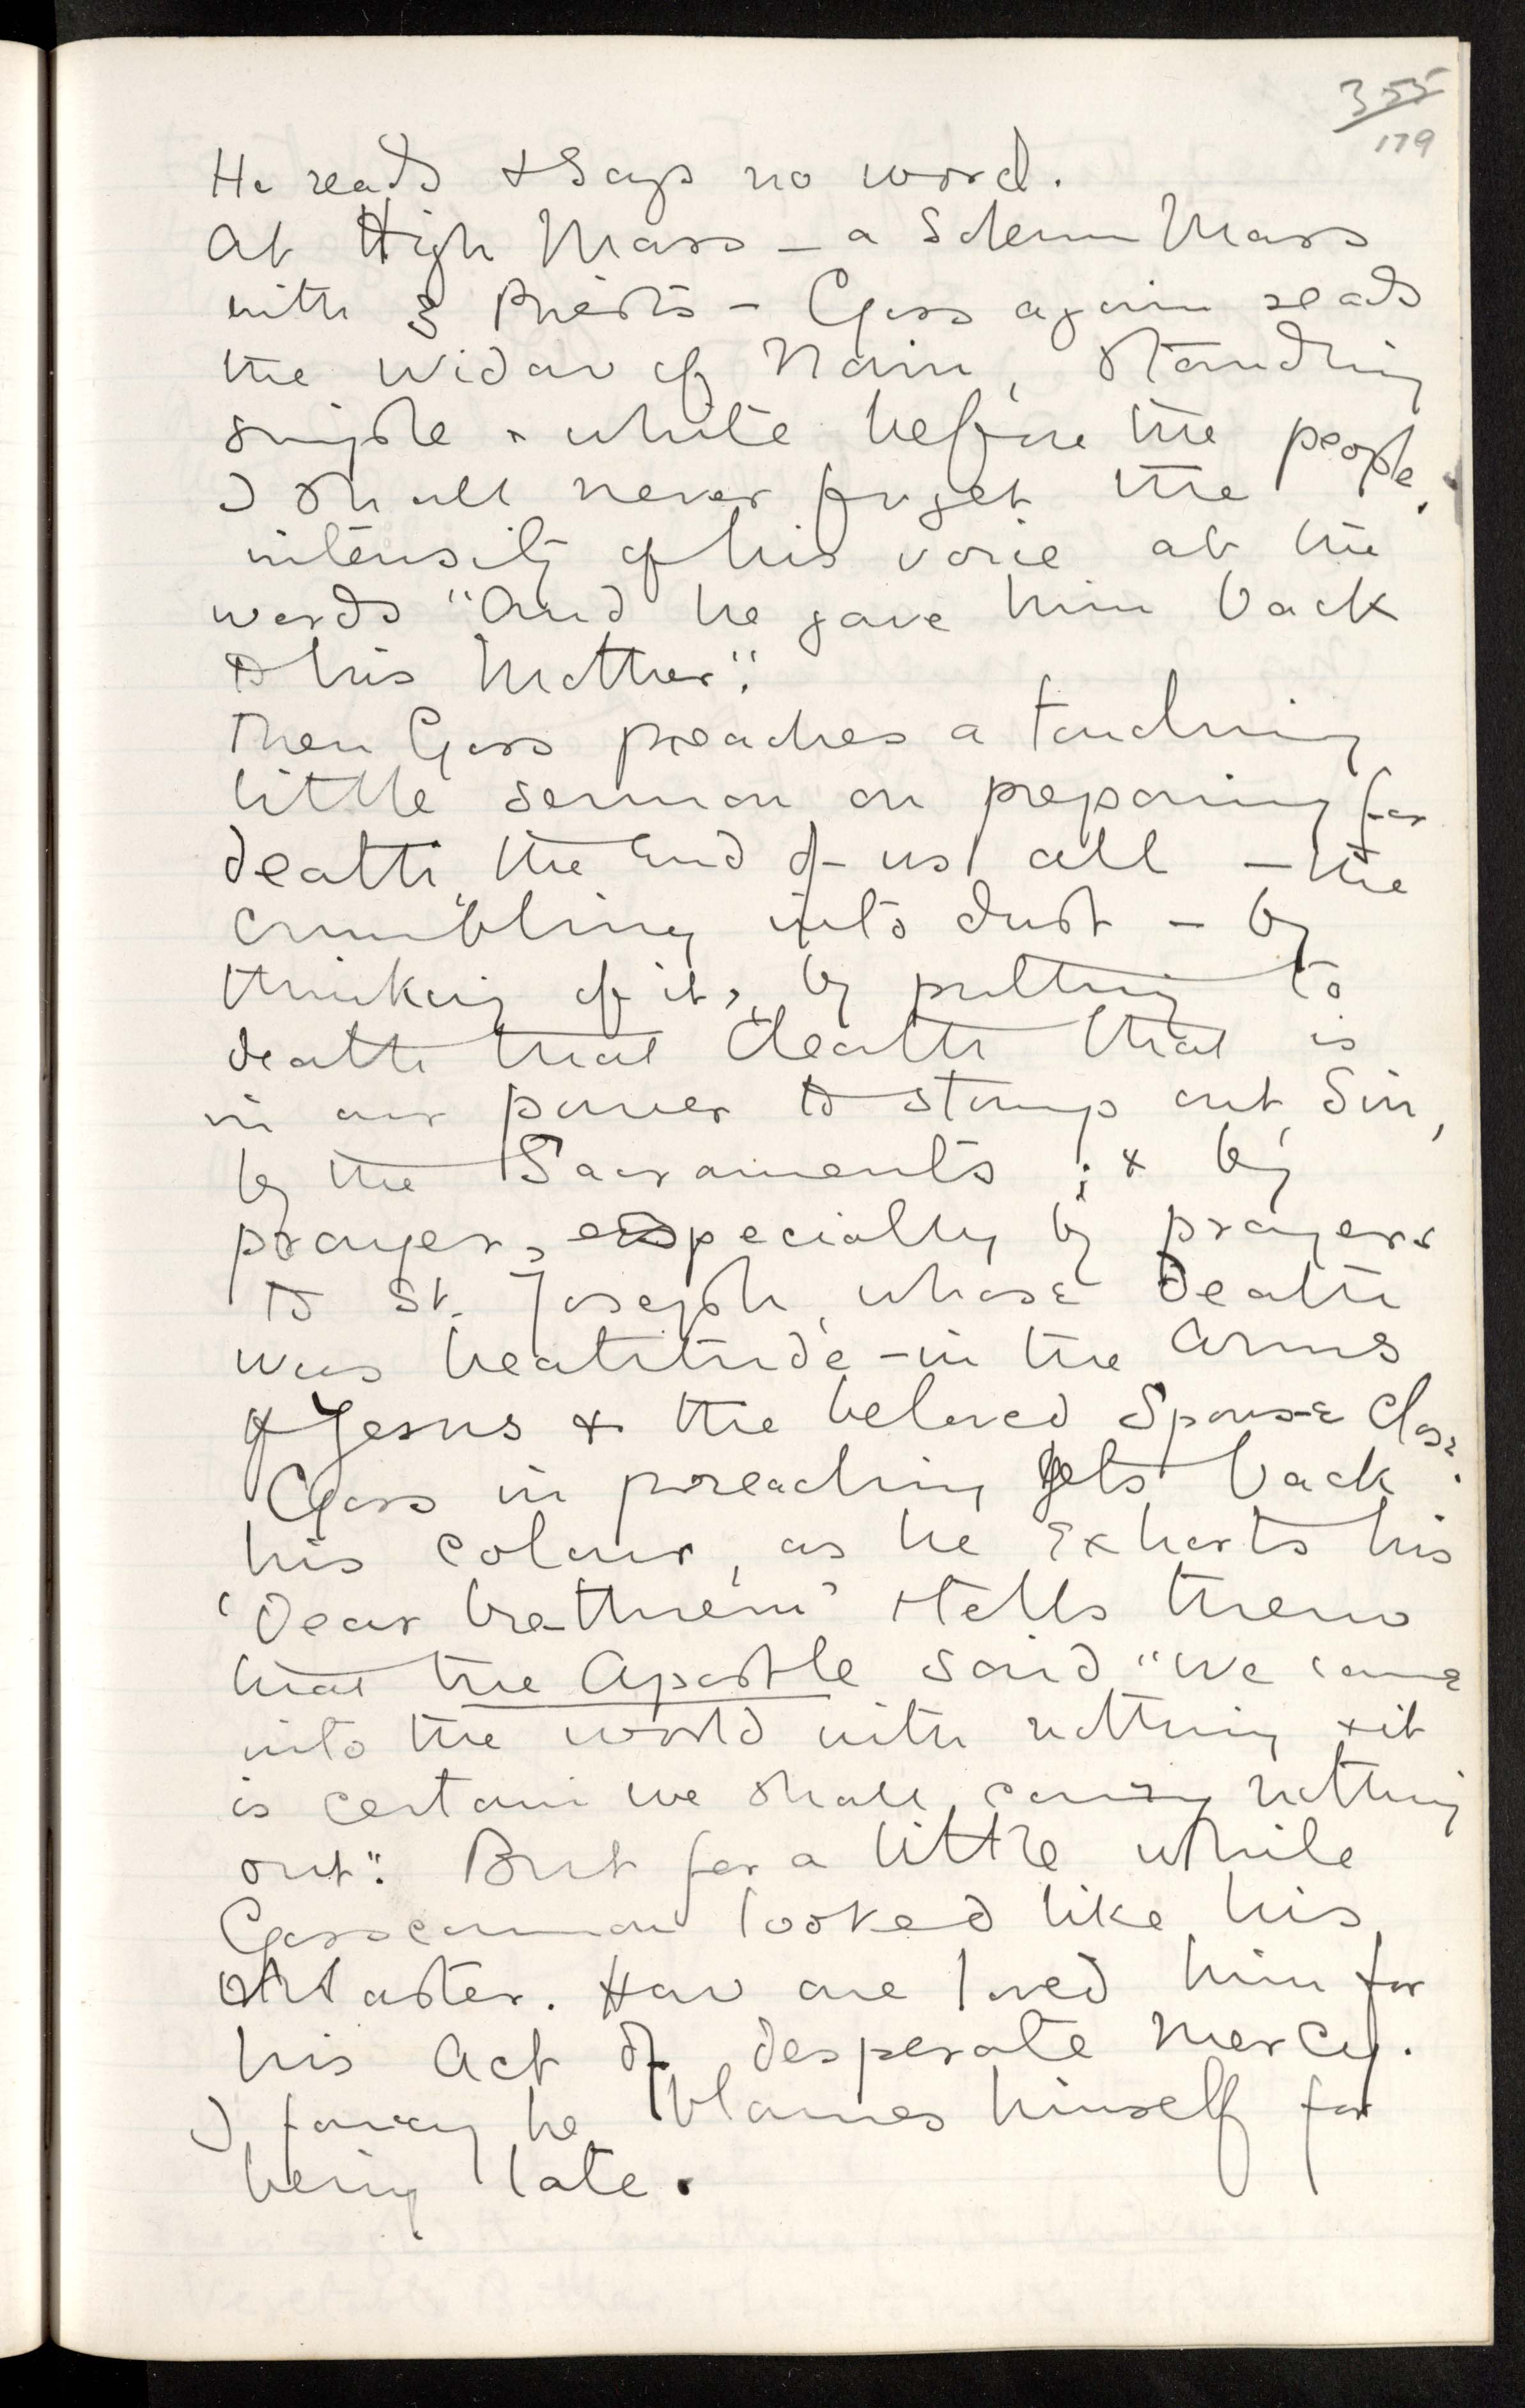 355
179
He reads & says no word.
At High Mass – a Solemn Mass
with 3 Priests – Goss again reads
the Widow of Nain, standing
simple & white before the people.
I shall never forget the
intensity of his voice at the
words "And he gave him back
to his Mother".
Then Goss preaches a touching
little sermon on preparing for
death, the End of us all – the
crumbling into dust – by
thinking of it, by putting to
death that death that is
in our power to stamp out, Sin,
by the Sacraments; & by
prayer, especially by prayers
to St. Joseph, whose Death
was beatitude – in the Arms
of Jesus & the beloved Spouse close.
Goss in preaching gets back
his colour, as he exharts his
'Dear brethren' & tells them
that the Apostle said "We came
into the world with nothing & it
is certain we shall carry nothing
out". But for a little while
looked like his
Master. How one loved him for
his Act of desperate Mercy.
I fancy he blames himself for
being late.